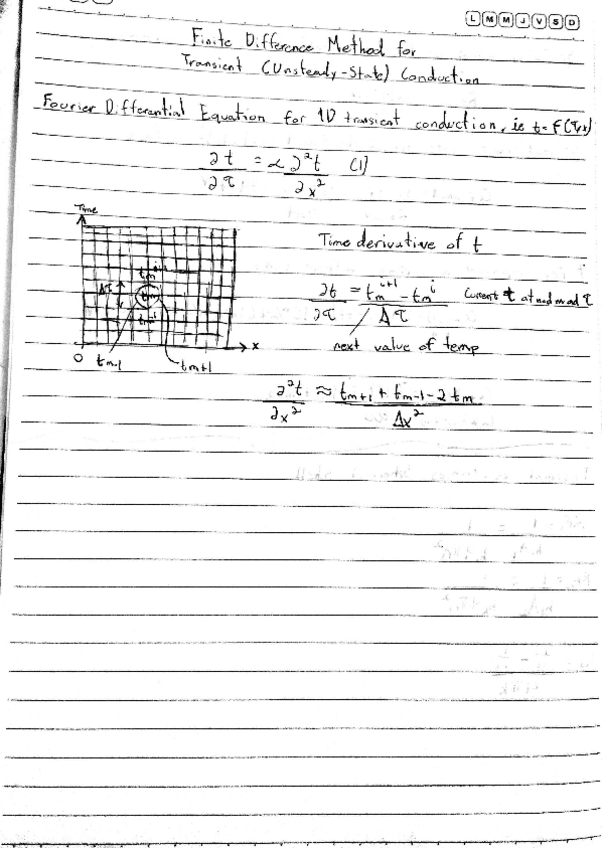 L M M J V S D
Finite Difference Method for
Transient (Unsteady-State) Conduction
Fourier Differential Equation for 1D transient conduction, ie t=f(τ,x)
∂t/∂τ = α ∂²t/∂x² (1)
Time
Time derivative of t
Δτ
∂t/∂τ = (tₘⁱ⁺¹ - tₘⁱ)/Δτ Current t at nod m and τ
next value of temp
0 tm-1 tm+1 x
∂²t/∂x² ≈ (tm+1 + tm-1 - 2tm)/Δx²